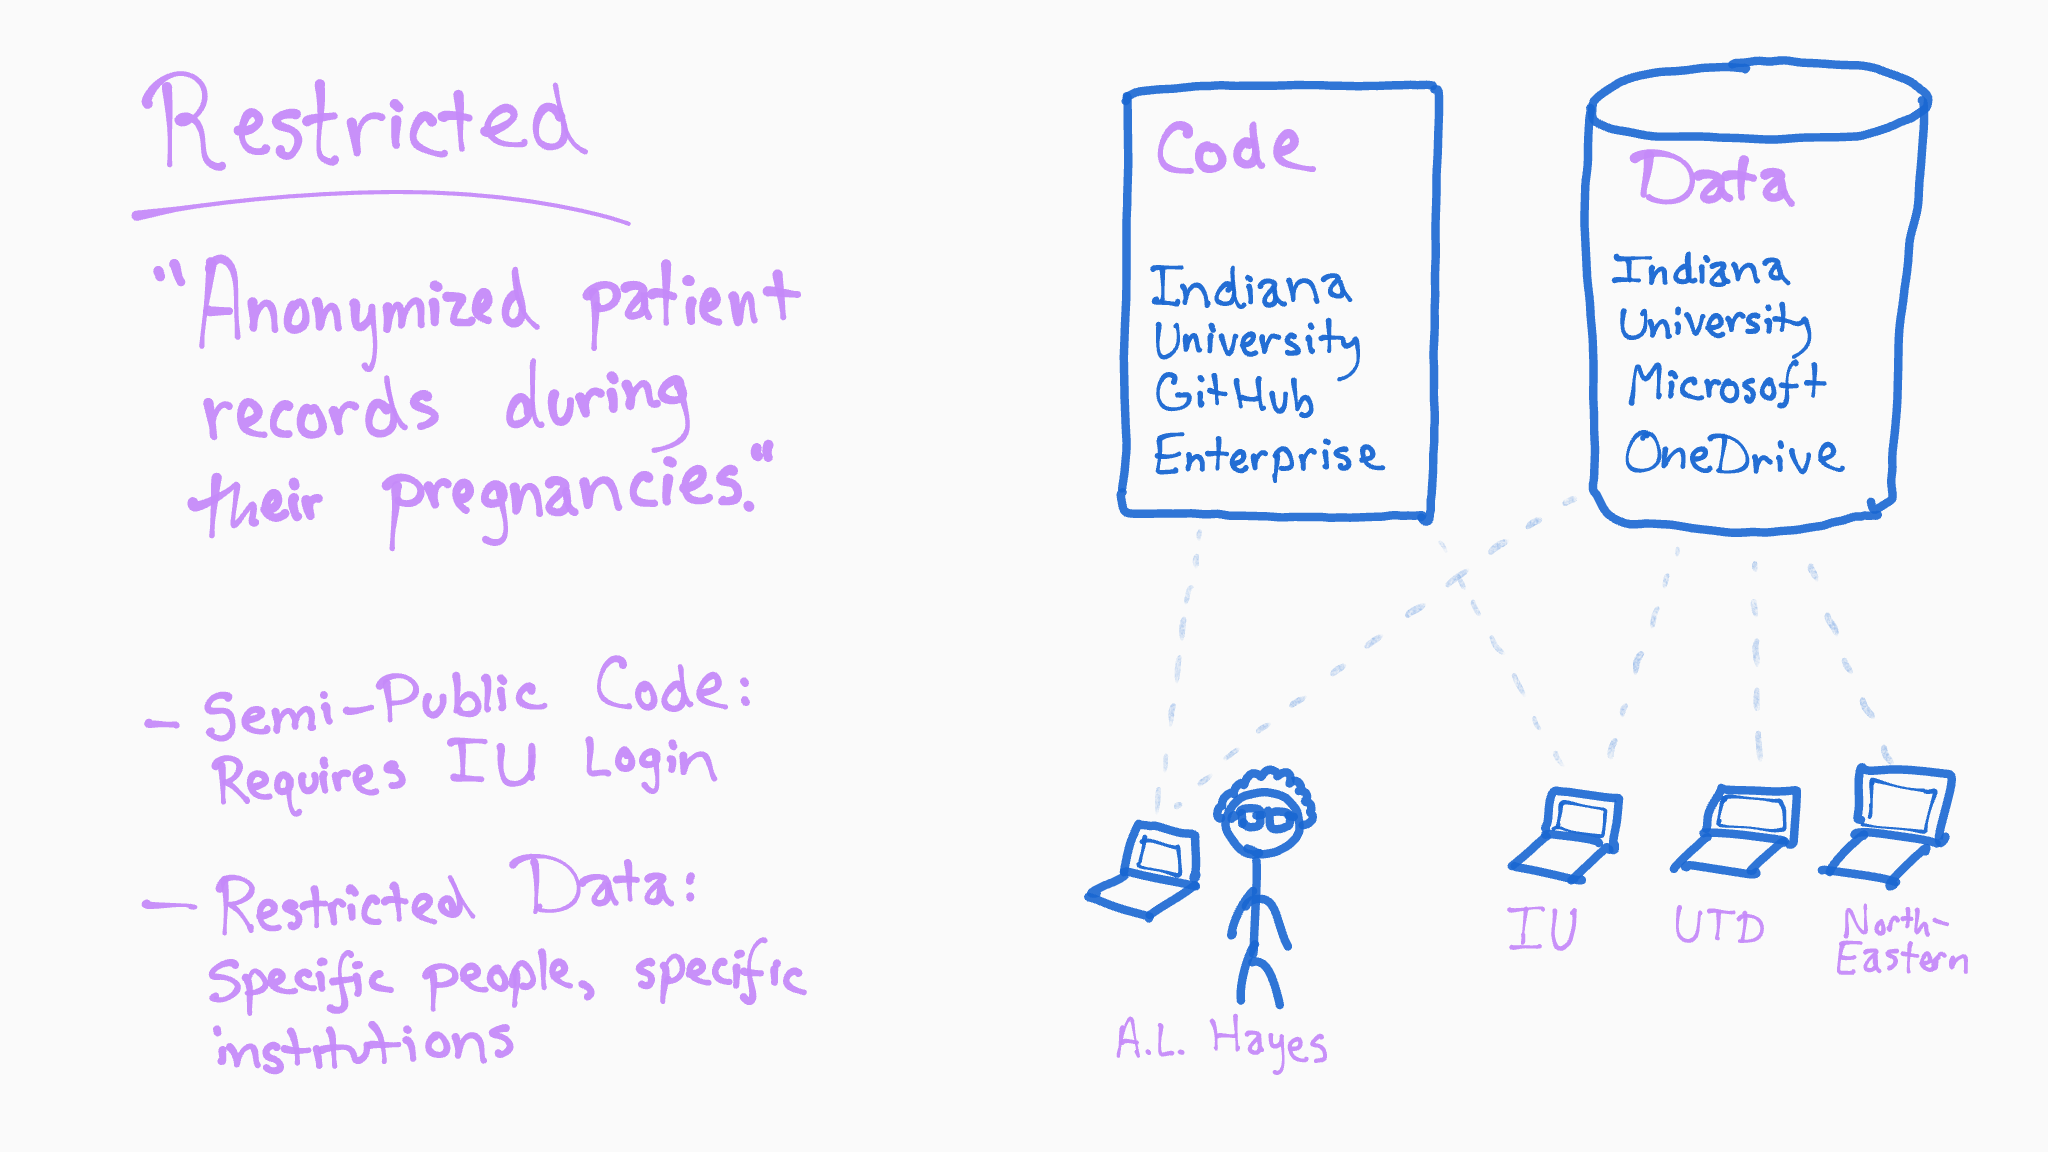 Restricted
"Anonymized patient
records during
their pregnancies."
- Semi-Public Code:
Requires IU Login
- Restricted Data:
Specific people, specific
institutions
Code
Indiana
University
GitHub
Enterprise
Data
Indiana
University
Microsoft
OneDrive
A.L. Hayes
IU
UTD
North-
Eastern